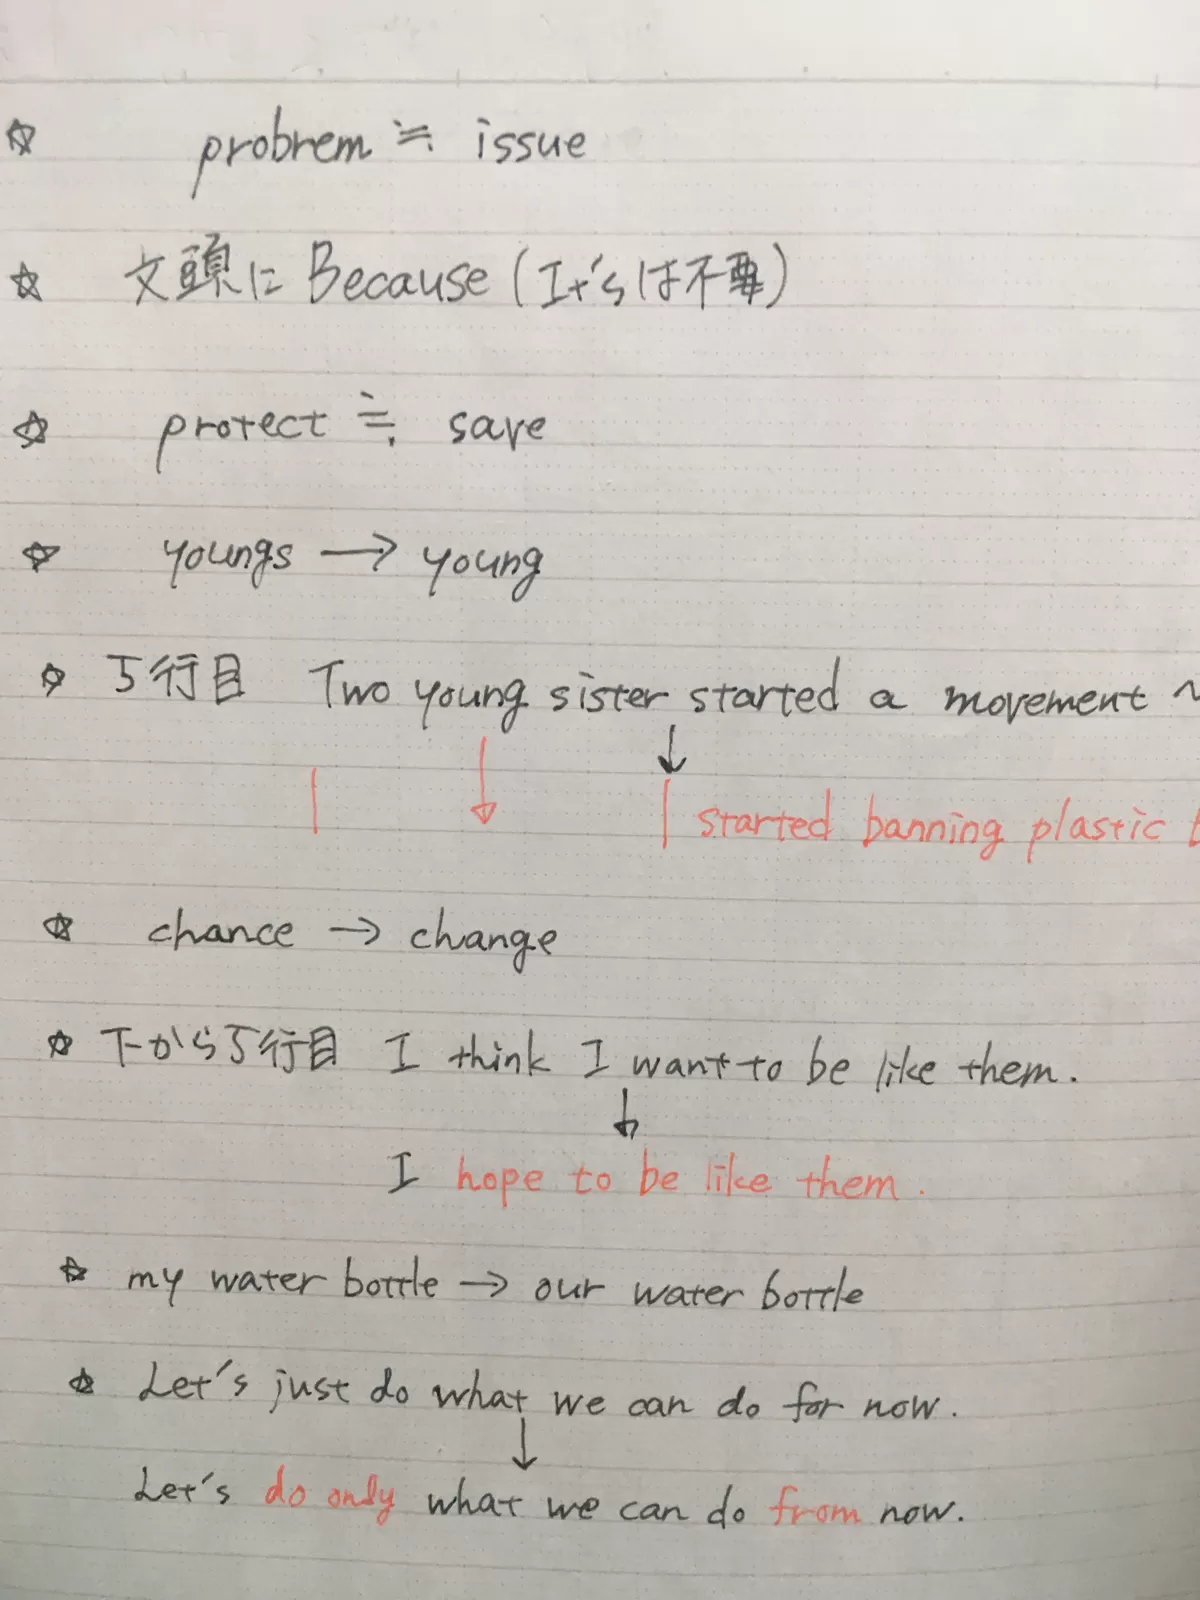 ☆ probrem ≒ issue
☆ 文頭に Because (It'sは不要)
☆ protect ≒ save
☆ youngs → young
☆ 5行目 Two young sister started a movement ~
↓ ↓
| | started banning plastic
☆ chance → change
☆ 下から5行目 I think I want to be like them.
↓
I hope to be like them.
☆ my water bottle → our water bottle
☆ Let's just do what we can do for now.
↓
Let's do only what we can do from now.